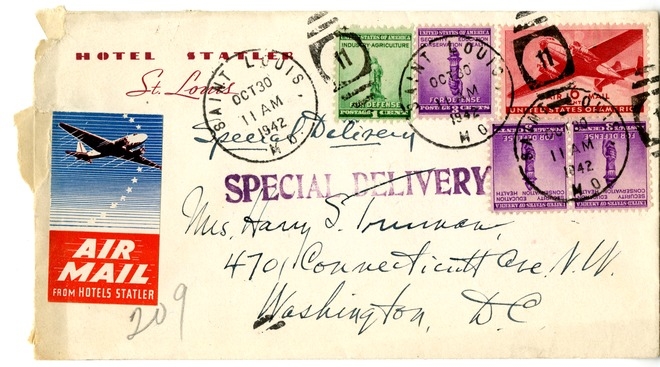 HOTEL STATLER
St. Louis
SAINT LOUIS, MO.
OCT 30
11 AM
1942
11
UNITED STATES OF AMERICA
INDUSTRY-AGRICULTURE
FOR DEFENSE
POSTAGE 1 CENT
UNITED STATES OF AMERICA
CONSERVATION HEALTH
FOR DEFENSE
SAINT LOUIS, MO.
OCT 30
AM
1942
11
UNITED STATES OF AMERICA
SAINT LOUIS, MO.
OCT 30
11 AM
1942
FOR DEFENSE
SECURITY EDUCATION
CONSERVATION HEALTH
UNITED STATES OF AMERICA
FOR DEFENSE
SECURITY
CONSERVATION
UNITED STATES OF AMERICA
Special Delivery
SPECIAL DELIVERY
Mrs. Harry S. Truman,
4701 Connecticutt Ave. N.W.
Washington, D.C.
AIR
MAIL
FROM HOTELS STATLER
209